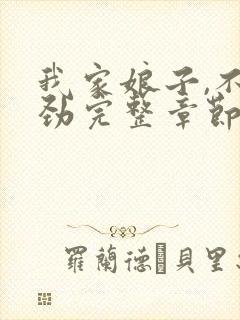 我家娘子,不
劲完整章節
羅蘭德·貝里